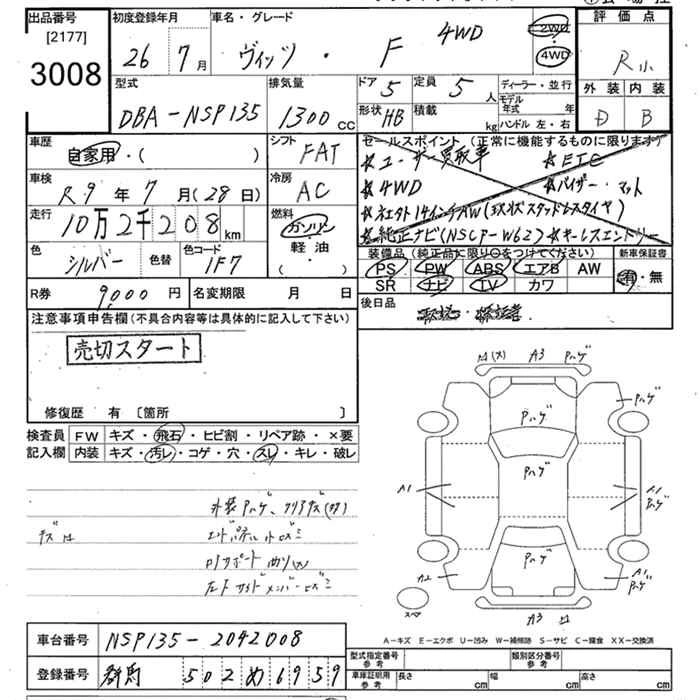 出品番号 [2177] 3008
初度登録年月 26年 7月
車名・グレード ヴィッツ・F 4WD
2WD 4WD
評価点 R小
外装 内装
D B
型式 DBA-NSP135
排気量 1300 CC
ドア 5 定員 5人
形状 HB 積載 kg
ディーラー・並行
モデル年式 年
ハンドル 左・右
車歴 自家用・( )
シフト FAT
車検 R9年 7月(28日)
冷房 AC
走行 10万2千208km
燃料 ガソリン 軽油 ( )
色 シルバー 色替 色コード 1F7
セールスポイント(正常に機能するものに限ります)
☆ユーザー買取車 ☆ETC
☆4WD ☆バイザー・マット
☆社外14インチAW(現状スタッドレスタイヤ)
☆純正ナビ(NSCP-W62) ☆キーレスエントリー
装備品(純正品に限り○をつけてください) 新車保証書
PS PW ABS エアB AW 有・無
SR ナビ TV カワ
R券 9,000円 名変期限 月 日
後日品
注意事項申告欄(不具合内容等は具体的に記入して下さい)
売切スタート
修復歴 有〔箇所 〕
検査員 FW キズ・飛石・ヒビ割・リペア跡・×要
記入欄 内装 キズ・汚レ・コゲ・穴・スレ・キレ・破レ
外装Pハゲ、クリアハゲ(有)
A3 Pハゲ
Pハゲ
Pハゲ
Pハゲ
A1 A1 Pハゲ
Pハゲ
A2 A1 Pハゲ
スペア A3
A-キズ E-エクボ U-凹み W-補修跡 S-サビ C-腐食 XX-交換済
車台番号 NSP135-2042008
登録番号 群馬 502 め 6959
型式指定番号 参考 類別区分番号 参考
車庫証明用 参考 長さ cm 幅 cm 高さ cm